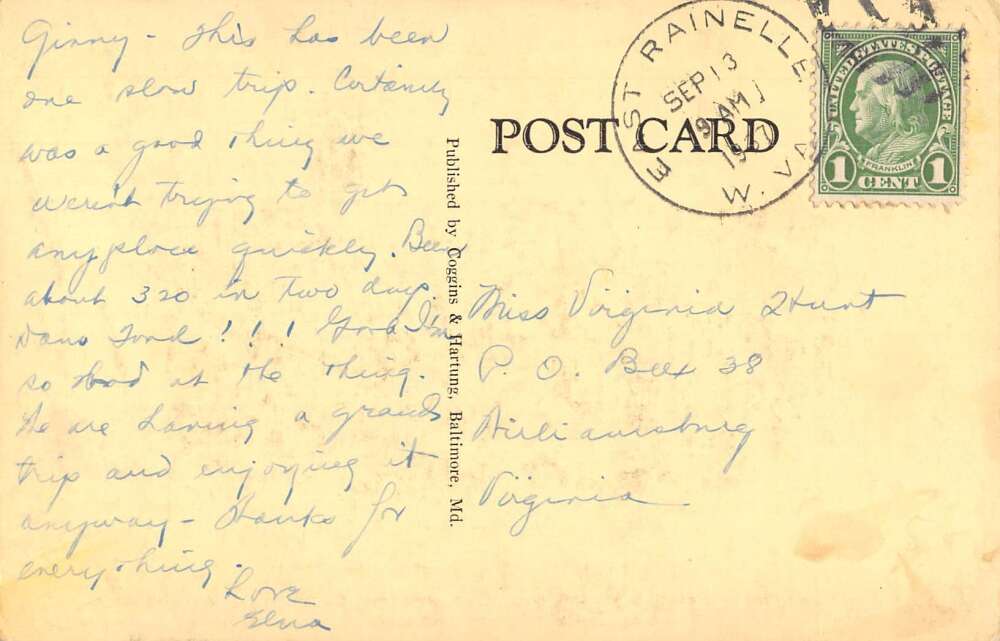 Ginny - This has been
one slow trip. Certainly
was a good thing we
weren't trying to get
any place quickly. Been
about 320 in two days.
Ford ! ! ! I'm
so at the thing.
We are having a grand
trip and enjoying it
anyway - thanks for
everything.
Love
Published by Coggins & Hartung, Baltimore, Md.
POST CARD
EAST RAINELLE
SEP 13
9 AM
W. VA
UNITED STATES POSTAGE
FRANKLIN
1 CENT 1
Miss Virginia Hunt
P. O. Box 38
Williamsburg
Virginia